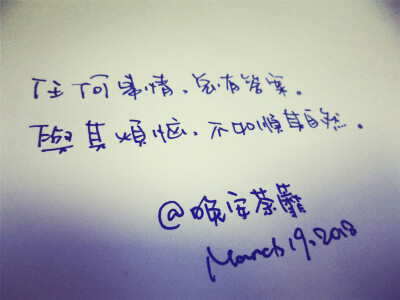 任何事情,总有答案。
與其煩惱,不如順其自然。
@晚安荼蘼
March 19.2018